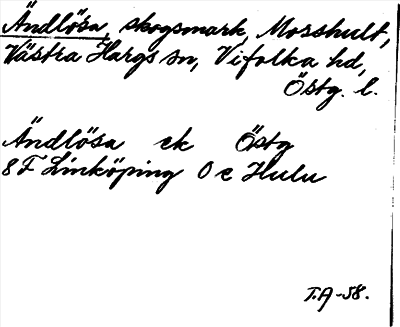 Ändlösa, skogsmark, Mosshult,
Västra Hargs sn, Vifolka hd,
Östg. l.
Ändlösa ek Östg
8F Linköping 0 e Hulu
T.A-58.